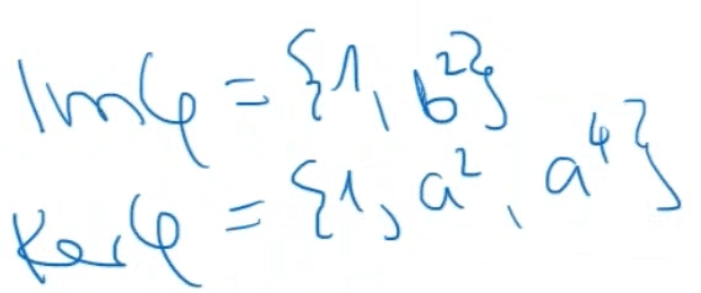 Imφ = {1, b²}
Kerφ = {1, a², a⁴}